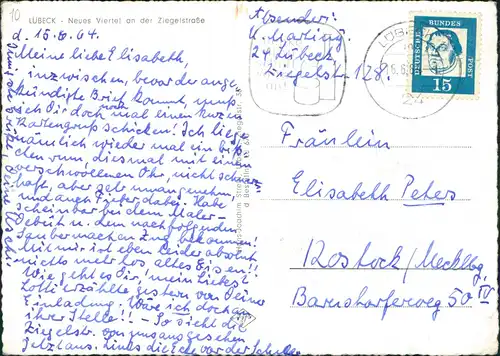 10
LÜBECK - Neues Viertel an der Ziegelstraße
d. 15.6.64.
Meine liebe Elisabeth,
inzwischen, bevor der ange-
kündigte Brief kommt, muß
ich Dir doch noch mal einen kurzen
Kartengruß schicken! Ich liege
nämlich wieder mal ein biß-
chen rum, diesmal mit einem
verschwollenen Ohr, nicht schmerz-
haft, aber sehr unangenehm,
und auch Fieber dabei. Habe
scheinbar bei dem Maler-
Debüt u. dem nachfolgenden
Saubermachen Zug bekommen!
Mit mir ist eben leider absolut
nichts mehr los, altes Eisen!!
Wie geht es Dir, mein Liebes?
Lotti erzählte gestern von Deiner
Einladung. Wäre ich doch an
ihrer Stelle!! - So sieht die
Ziegelstr. von uns aus gesehen
jetzt aus. Links die Ecke vor der Schule.
Absender:
U. Martius
24 Lübeck,
Ziegelstr. 128.
LÜBECK
24
DEUTSCHE BUNDESPOST
15
Fräulein
Elisabeth Peters
Rostock/Mecklbg.
Barnstorferweg 50 IV